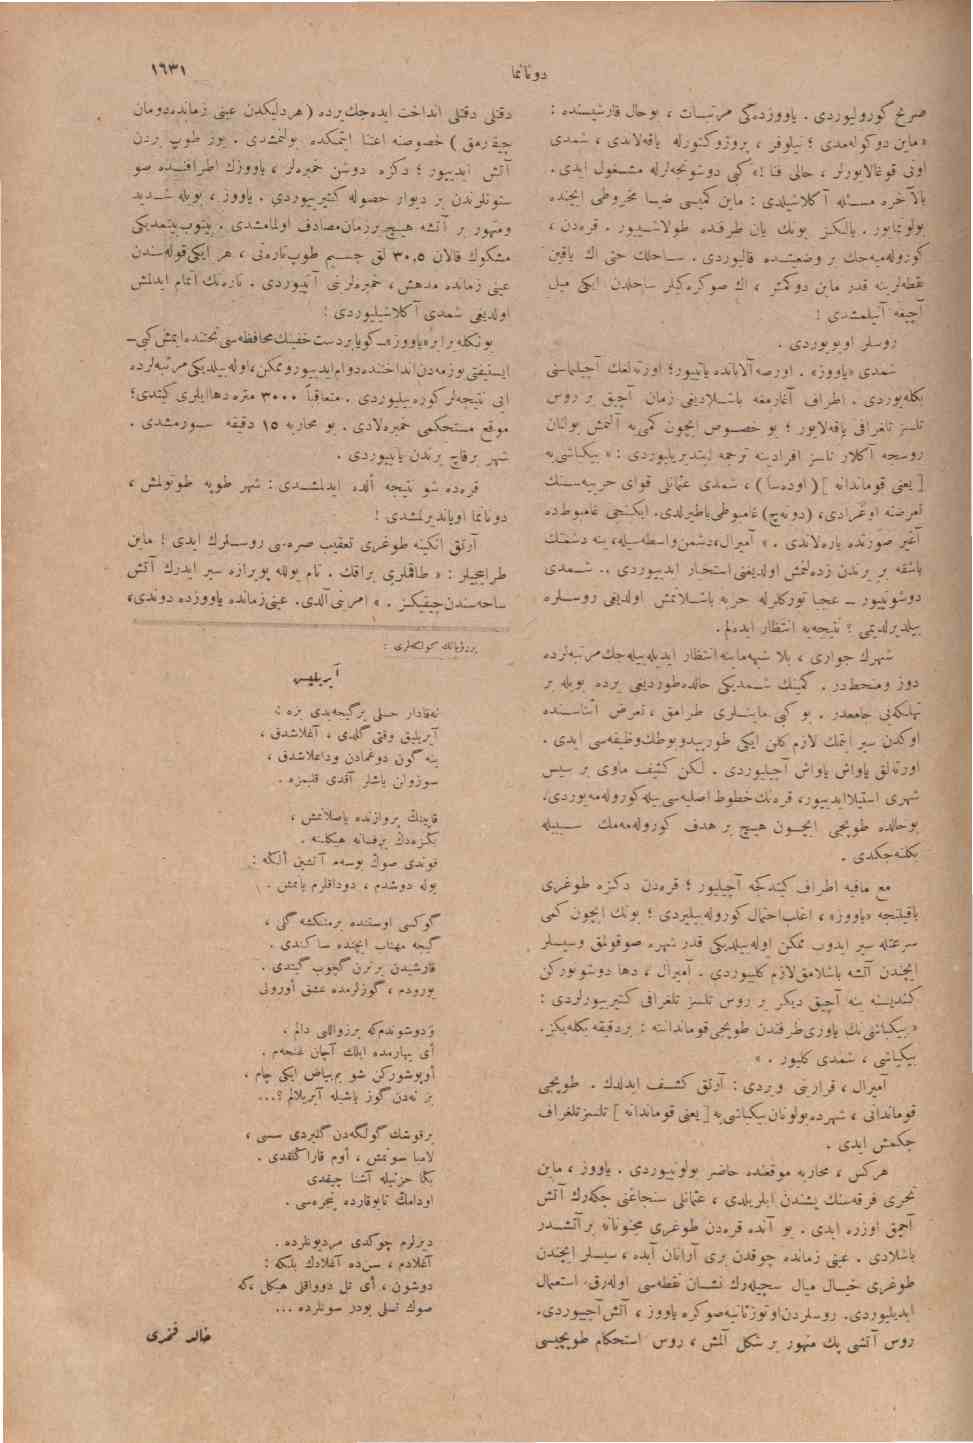 دوناﻧﻤﺎ
١٦٣١
صریح كورولیوردی . یاووزده‌كی مرتبـات ، بوحال قارشیسنده :
«ماین دوكوله‌مدی ؛ نیلوفر ، پروزوكتورله یاقه‌لاندی ، شمدی
اونی قوغالایورلر ، حالی فنا !» كبی دوشونجه‌لرله مشـغول ایدی .
بالآخره مسـئله آكلاشیلدی : ماین كمیـسی ضیـا مخروطی ایچنده
بولونمایور . یالكـز بونك یان طرفـنده طولاشـیور . قره‌دن ،
كوروله‌میه‌جك بر وضعیتـده قالیوردی . سـاحلك حتی اك یاقین
نقطه‌لرینه قدر ماین دوكمش ، اك صوكره‌كیلر ساحلدن ایكی میل
آچیغه آتیلمشدی !
روسلر اویویوردی .
شمدی «یاووز» . اورصه آلاباند‌ه یاتیور ؛ اورته‌لغك آچیلماسنی
بكله‌یوردی . اطراف آغارمغه باشـلادیغی زمان آچیق بر روس
تلسز تلغرافی یاقه‌لایور ؛ بو خصـوص ایچون كمی‌یه آلنمش بولنان
روسجه آكلار تلسز افرادینه ترجمه ایتدیریلیوردی : « بیكباشی‌یه
[ یعنی قوماندانه ] ( اوده‌سا ) ، شمدی عثمانلی قوای حربیه‌سـنك
تعرضنه اوغرادی ، (دونه‌چ) غامبوطی باطیرلدی. ایكنجی غامبوط ده
آغیر صورتده یاره‌لاندی . » آمیرال ، دشمن واسطه‌سیله ، ینه دشمنك
باشقه بر یرندن زده‌لنمش اولدیغنی استخبار ایدییوردی .. شـمدی
دوشونییور ــ عجبا توركلرله حربه باشـلانمش اولدیغی روسـلره
بیلدیرلدیمی ؟ نتیجه‌یه انتظار ایده‌لم .
شهرك جواری ، بلا شبهه ماینه انتظار ایدیله‌بیله‌جك مرتبه‌لرده
دوز ومنحط در . كمینك شـمدیكی حالده طوردیغی یرده بویله بر
تهلكه‌یی جامعدر . بو كبی ماینـلری طرامق ، تعرض اثناسـنده
اوكدن سیر ایتمك لازم كلن ایكی طورپیدوبوطك وظیفه‌سی ایدی .
اورته‌لق یاواش یاواش آچیلیوردی . لكن كثیف ماوی بر سیس
شهری استیلا ایدییور، قره‌نك خطوط اصلیه‌سی بیله كوروله‌مه‌یوردی؛
بوحالده طوپجی ایچـون هیـچ بر هدف كوروله‌مه‌مك سـببیله
بكلنه‌جكدی .
مع مافیه اطراف كیتدكجه آچیلیور ؛ قره‌دن دكزه طوغری
باقیلنجه «یاووز» ، اغلب احتمال كوروله‌بیلیردی ؛ بونك ایچون كمی
سرعتله سیر ایدوب ممكن اوله‌بیلدیكی قدر شهره صوقولمق وسیسلر
ایچندن آتشه باشلامق لازم كلییوردی . آمیرال ، دها دوشونوركن
كندیسنه ینه آچیق دیكر بر روس تلسز تلغرافی كتیرییورلردی :
« بیكباشی‌نك یاوری طرفندن طوپجی قوماندانته : بر دقیقه بكله‌یكز .
بیكباشی ، شمدی كلیور . »
آمیرال ، قرارینی ویردی : آرتق كشـف ایدلدك . طوپجی
قوماندانی ، شهرده بولونان بیكباشی‌یه [ یعنی قوماندانه ] تلسز تلغراف
چكمش ایدی .
هركس ، محاربه موقعنده حاضر بولونییوردی . یاووز ، ماین
تحری فرقه‌سنك پشندن ایلریلدی ، عثمانلی سنجاغنی چكه‌رك آتش
آچمق اوزره ایدی . بو آنده قره‌دن طوغری مجنونانه بر آتشـدر
باشلادی . عینی زمانده چوقدن بری آرانان آبده ، سیسـلر ایچندن
طوغری خیـال میال سچیله‌رك نشـان نقطه‌سی اوله‌رق استعمال
ایدیلیوردی. روسلردن اوتوز ثانیه صوكره یاووز ، آتش آچییوردی.
روس آتشی پك متهور بر شكل آلمش ، روس استحكام طوپچیسی
دقتلی دقتلی انداخت ایده‌جك یرده ( هر دلیكدن عینی زمانده دومان
چیقارمق ) خصوصنه اعتنا ایتمكده بولنمشدی . یوز طوپ بردن
آتش ایدییور ؛ دكزه دوشن خمپره‌لر ، یاووزك اطرافنـده صو
ستونلرندن بر دیوار حصوله كتیرییوردی . یاووز ، بویله شـدید
ومتهور بر آتشه هیـچ بر زمان مصادف اولمامشدی . بیتوب بیتمدیكی
مشكوك قالان ٣٠,٥ لق جسـیم طوپ ناره‌نی ، هر ایكی قوله‌سـندن
عینی زمانده مدهش ، خمپره‌لرینی آتییوردی . ناره‌نك اتمام ایدلمش
اولدیغی شمدی آكلاشیلیوردی !
بونكله برابر «یاووز» ــ كویا بر دست خفینك محافظه‌سی تحتنده ایمش كبی ــ
ایستیفنی بوزمه‌دن انداختنده دوام ایدییور و ممكن ، اوله‌بیلدیكی مرتبه‌لرده
ایی نتیجه‌لر كوره‌بیلیوردی . متعاقباً ٣٠٠٠ متره دها ایلری كیتدی ؛
موقع مستحكمی خمپره‌لادی . بو محاربه ١٥ دقیقه سـورمشدی .
شهر برقاچ یرندن یانییوردی .
قره‌ده شو نتیجه ألده ایدلمشـدی : شهر طوپه طوتولمش ،
دوناﻧﻤﺎ اویاندیرلمشدی !
آرتق انكینه طوغری تعقیب صره‌سی روسـلرك ایدی ! ماین
طرایجیلر : « طاقملری براقك . تام یولله پویرازه سیر ایدرك آتش
ساحه‌سندن چیقیكـز . » امرینی آلدی. عینی زمانده یاووزده دوندی،
بر رؤیانك كولكه‌لری :
آیریلیش
نه‌قادار حسلی بر گیجه‌یدی بزه :
آیریلیق وقتی گلدی ، آغلاشدق ،
ینه گون دوغمادن وداعلاشدق ،
سوزولن یاشلر آقدی قلبمزه .
قاپینك پروازنده یاصلانمش ،
بكزه‌دك بر فسانه هیكلینه .
قوندی صوك بوسه‌م آتشین ألكه :
یوله دوشدم ، دوداقلرم یانمش .
گوكسی اوستنده بر منكشه گلی ،
گیجه مهتاب ایچنده ساكندی .
قارشیدن بر ترن گچوب گیتدی .
یورودم ، گوزلرمده عشق أورولی
ودوشوندم‌كه بر زوالللی دالم .
أی بهارمده ایلك آچان غنجه‌م .
أوپوشوركن شو بم‌بیاض ایكی چام ،
بز نه‌دن گوز یاشیله آیریلالم ؟...
بر قوشك گولگه‌دن گلیردی سسی ،
لامبا سونمش ، أوم قارا‌كلقدی .
بكا حزنیله آشنا چیقدی
اودامك تا یوقارده پنجره‌سی .
دیزلرم چوكدی مردیونلرده .
آغلادم ، سن‌ده آغلادك بلكه :
دوشون ، أی تل دوواقلی هیكل ، كه
صوك تسلی بودر سونلرده ...
خالد فخری